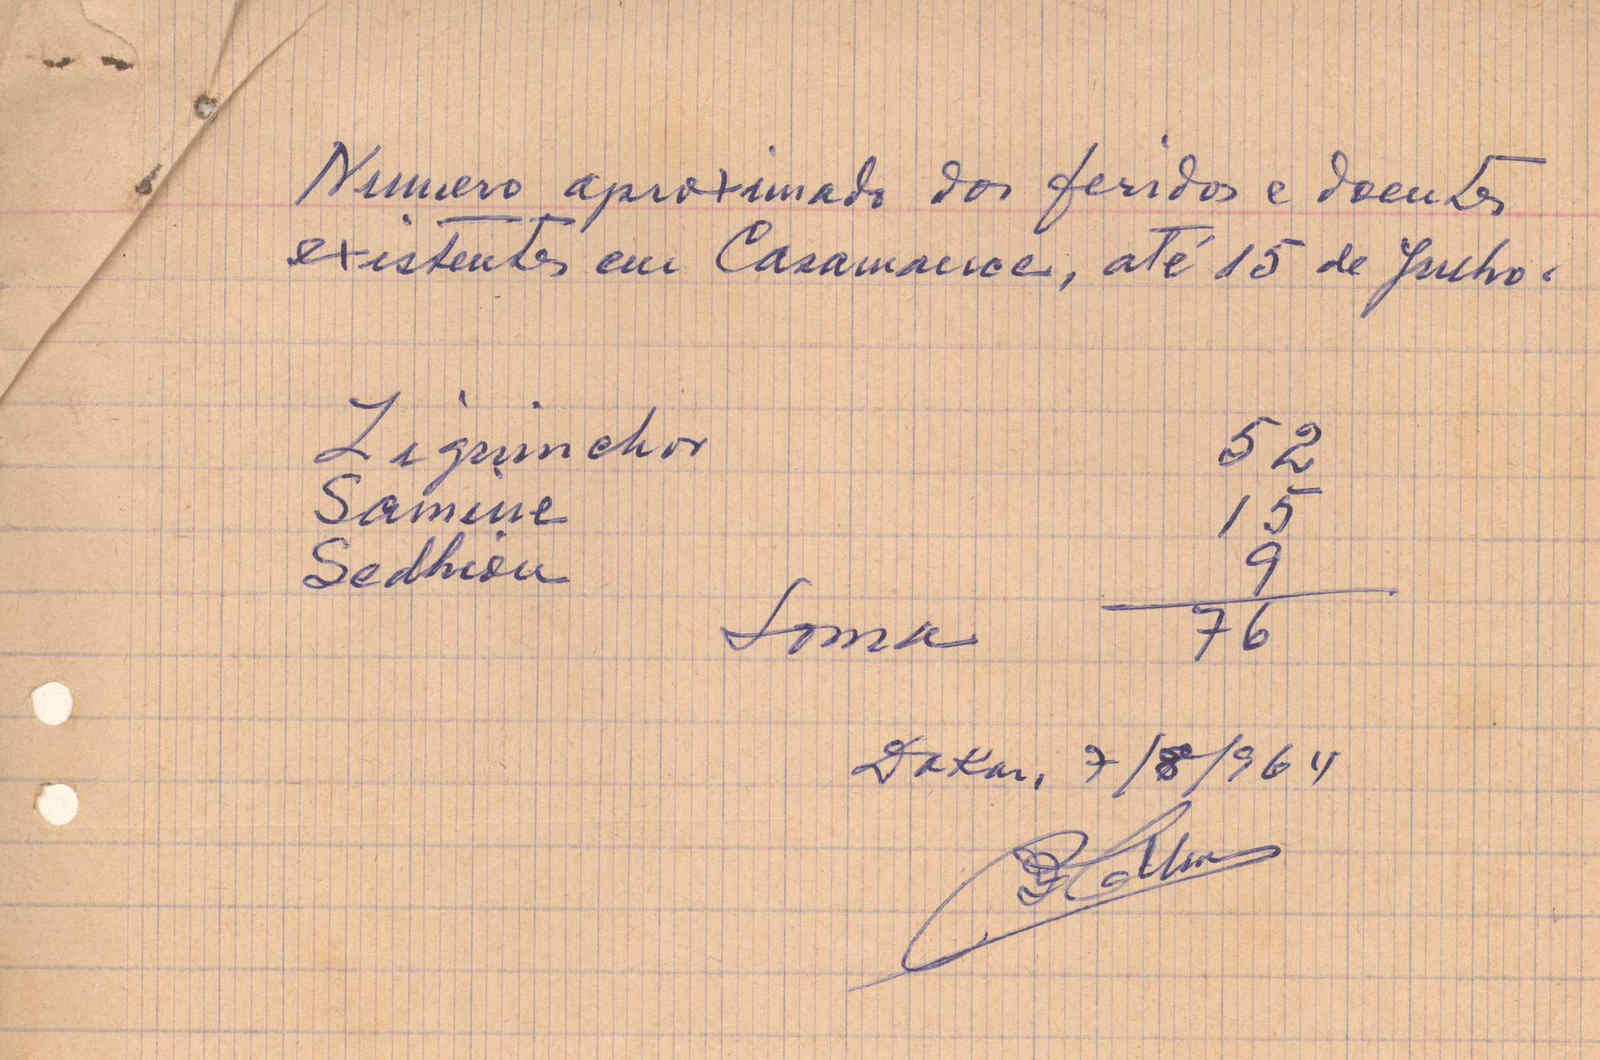 Numero aproximado dos feridos e doentes
existentes em Casamance, até 15 de Julho.
Ziguinchor 52
Samine 15
Sedhiou 9
Soma 76
Dakar, 7/8/964